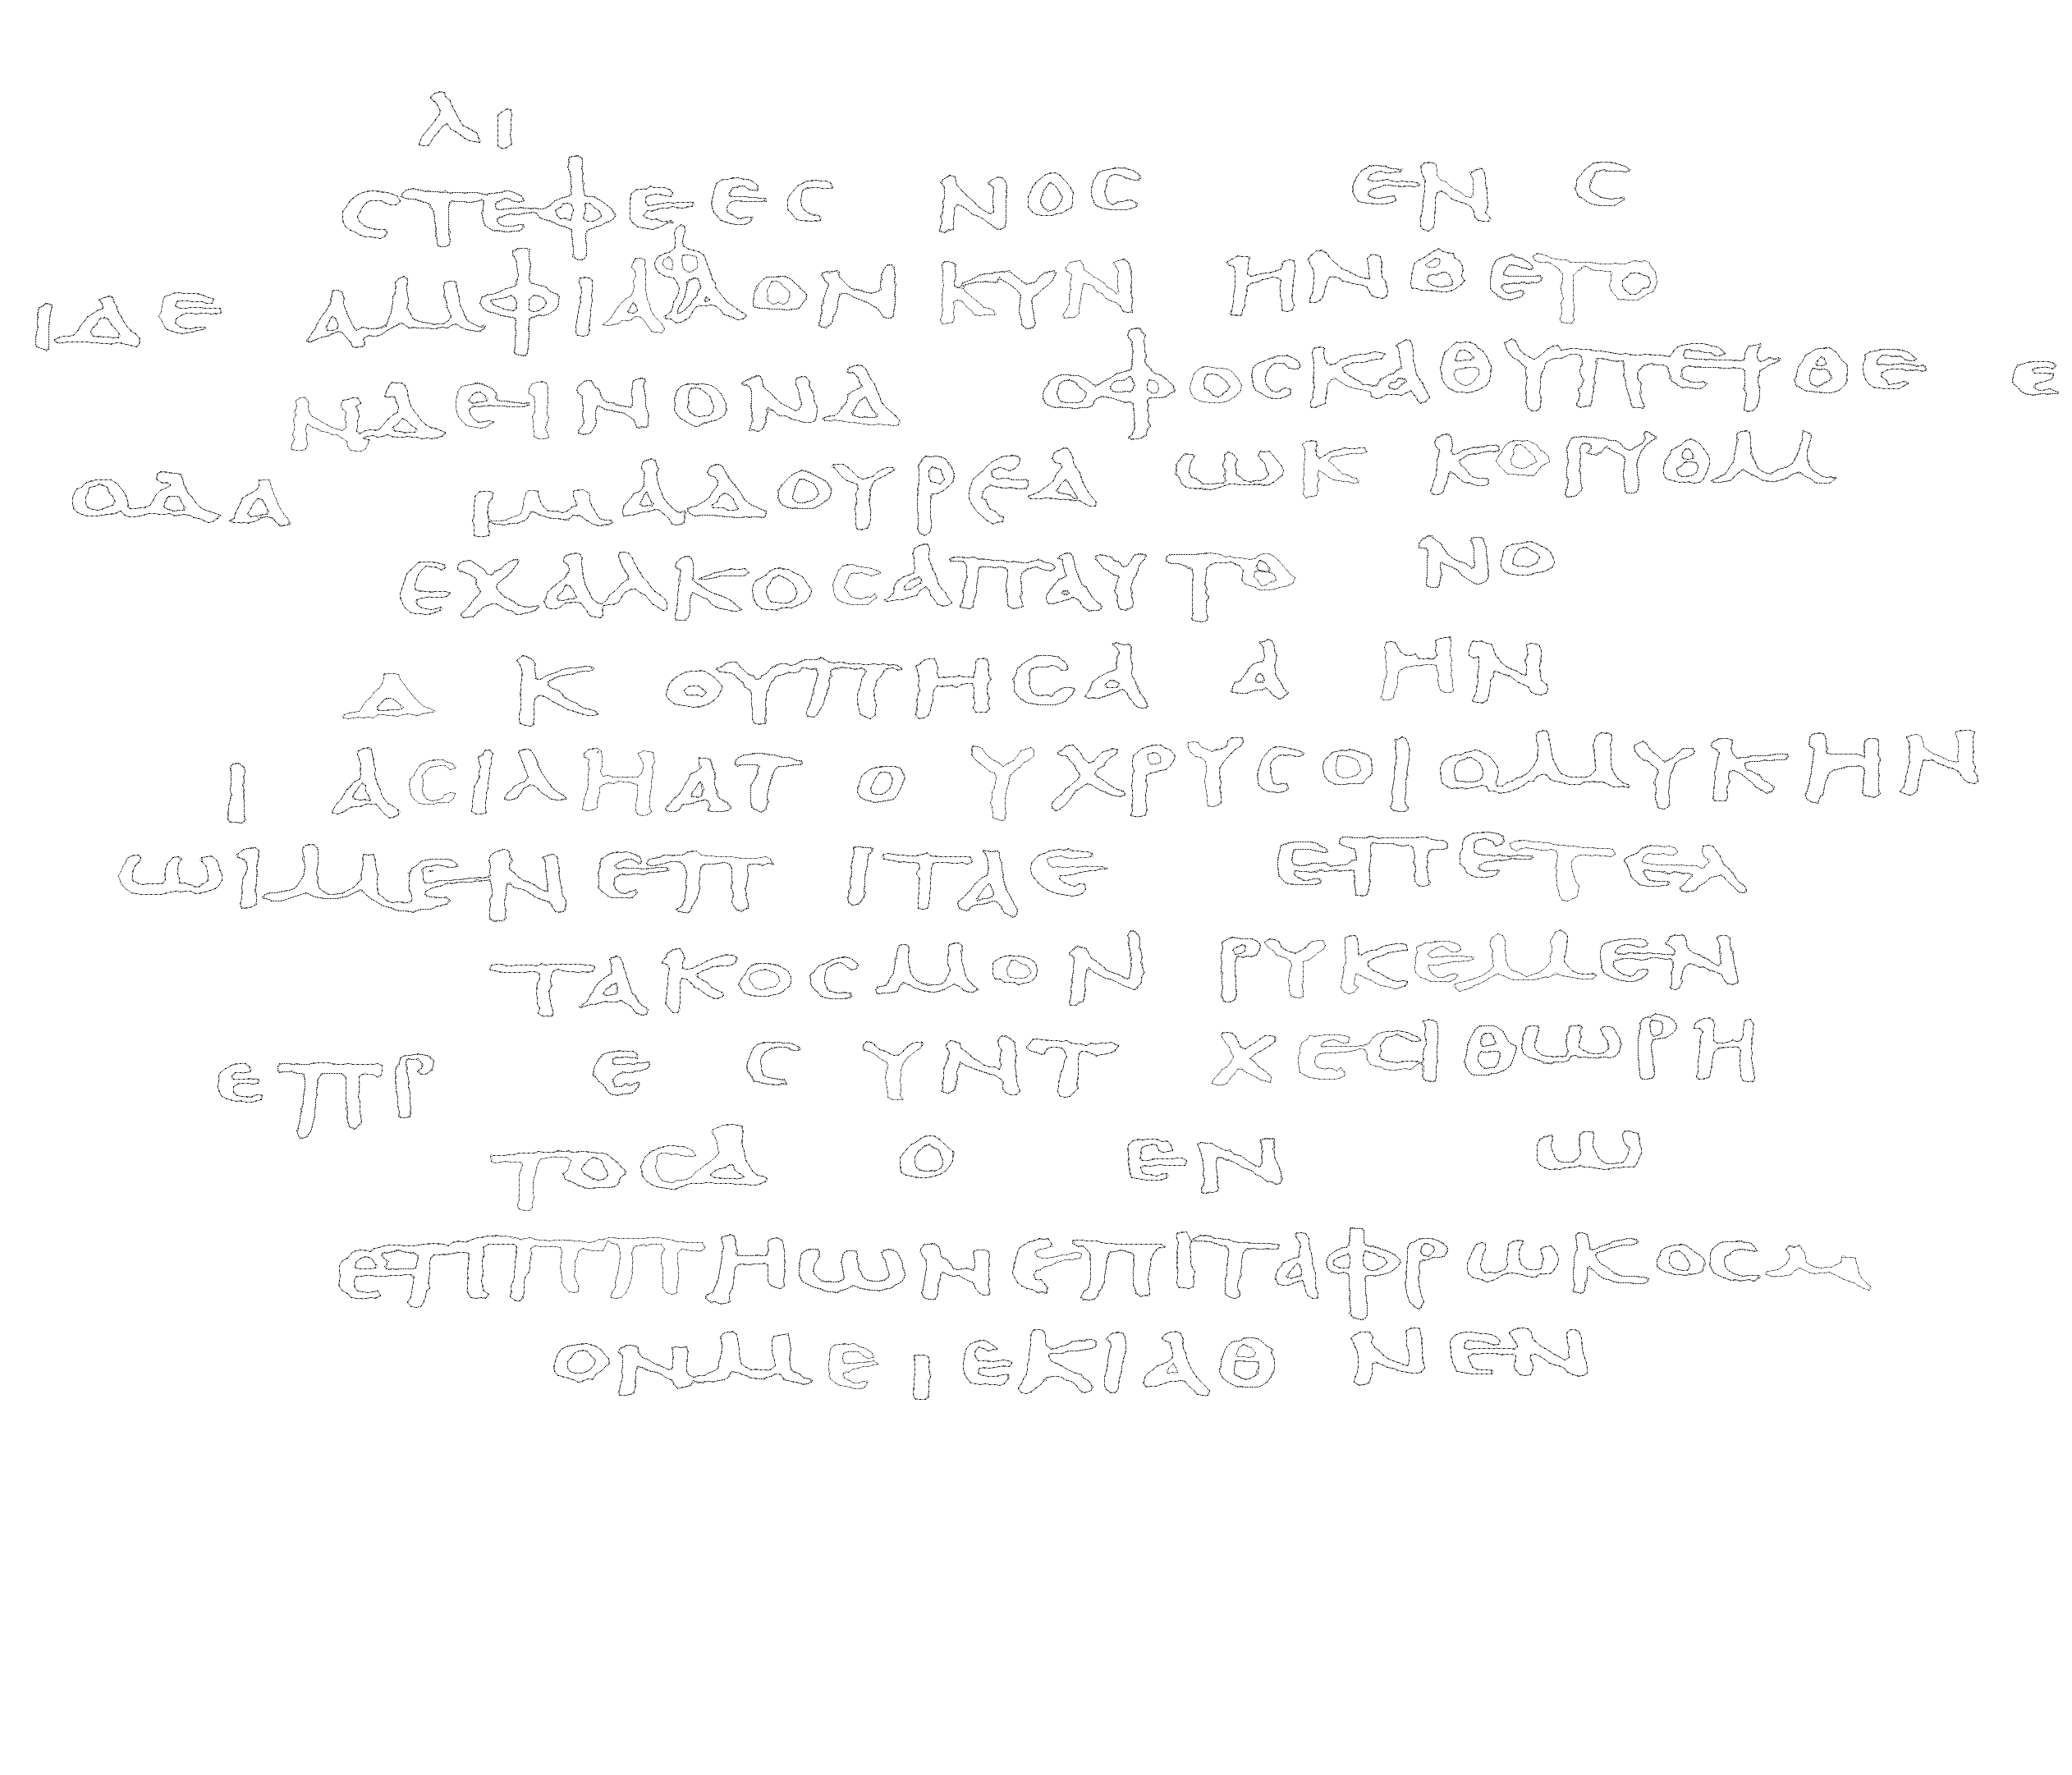 λι
ϲτεφεεϲ νοϲ εν ϲ
ιδε αμφιαφαον κυν ηνθετο
ναεινονδ οφοϲκαθυπετθε ε
οδα ιμαδουρεα ωκ κοπυθμ
εχαλκοϲαπαυτο νο
δ κ ουπηϲα α ην
ι αϲιληατ ο υχρυϲοιομυκην
ωιμενεπ ιταε επετελ
τακοϲμον ρυκεμεν
επρ ε ϲ υντ χεϲιθωρη
τοϲδ ο εν ω
επππηωνεπιταφρωκοϲμ
ονμειεκιαθ νεν